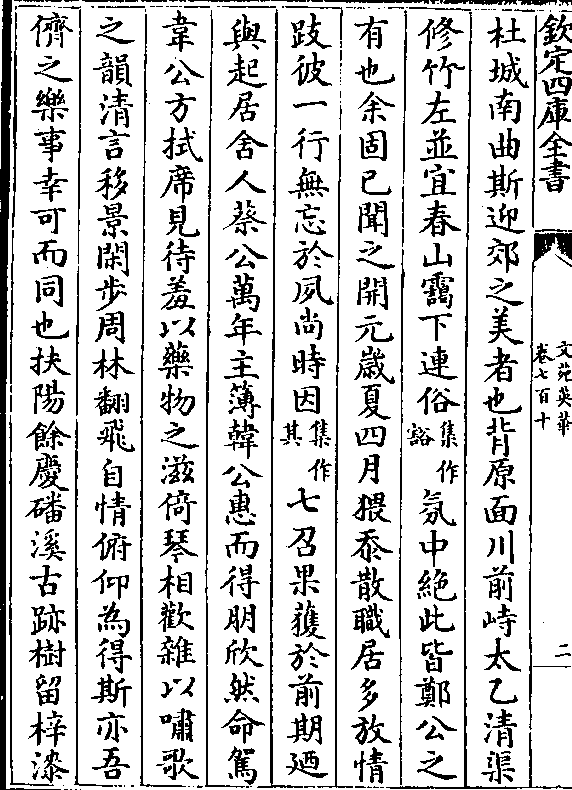 欽定四庫全書
文苑英華
卷七百十
二
杜城南曲斯迎郊之美者也背原面川前峙太乙清渠
修竹左並宜春山靄下連俗集作谿氛中絶此皆鄭公之
有也余固已聞之開元歲夏四月猥忝散職居多放情
跂彼一行無忘於夙尚時因集作其七召果蒦於前期廼
與起居舍人蔡公萬年主簿韓公惠而得朋欣然命駕
韋公方拭席見待羞以藥物之滋倚琴相歡雜以嘯歌
之韻清言移景閑步周林翻飛自情俯仰為得斯亦吾
儕之樂事幸可而同也扶陽餘慶磻溪古跡樹留梓漆